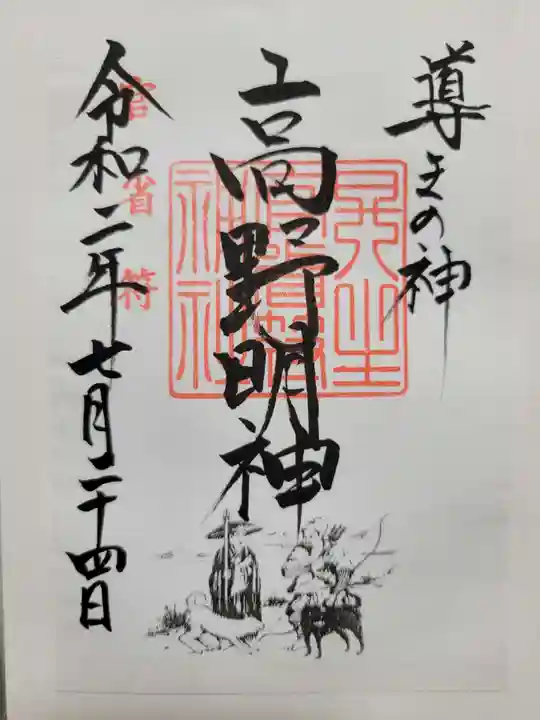 導き の神
高野明神
丹生
神社
官省符
令和二年七月二十四日